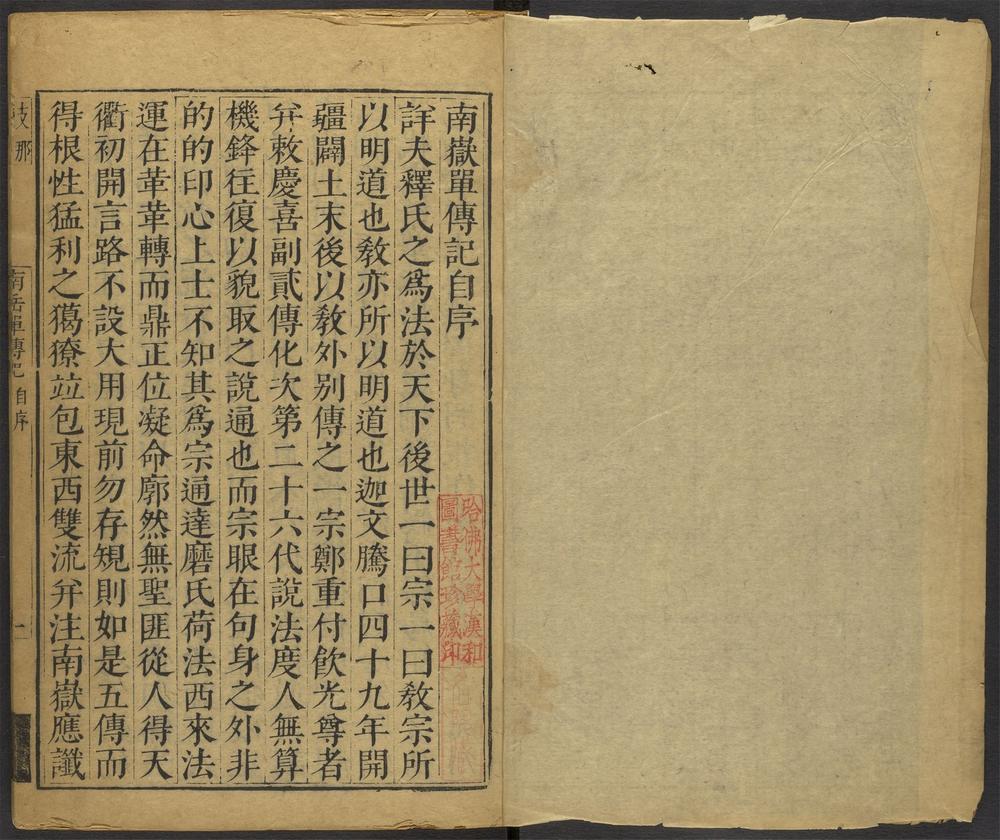 南嶽單傳記自序
詳夫釋氏之爲法於天下後世一曰宗一曰敎宗所
以明道也敎亦所以明道也迦文騰口四十九年開
疆闢土末後以敎外别傳之一宗鄭重付飲光尊者
弁敕慶喜副貳傳化次第二十六代說法度人無算
機鋒往復以貌取之說通也而宗眼在句身之外非
的的印心上士不知其爲宗通達磨氏荷法西來法
運在革革轉而鼎正位凝命廓然無聖匪從人得天
衢初開言路不設大用現前勿存䂓則如是五傳而
得根性猛利之獦獠竝包東西雙流弁注南嶽應讖
哈佛大學漢和
圖書館珍藏印
支那
南岳單傳記 自序
一